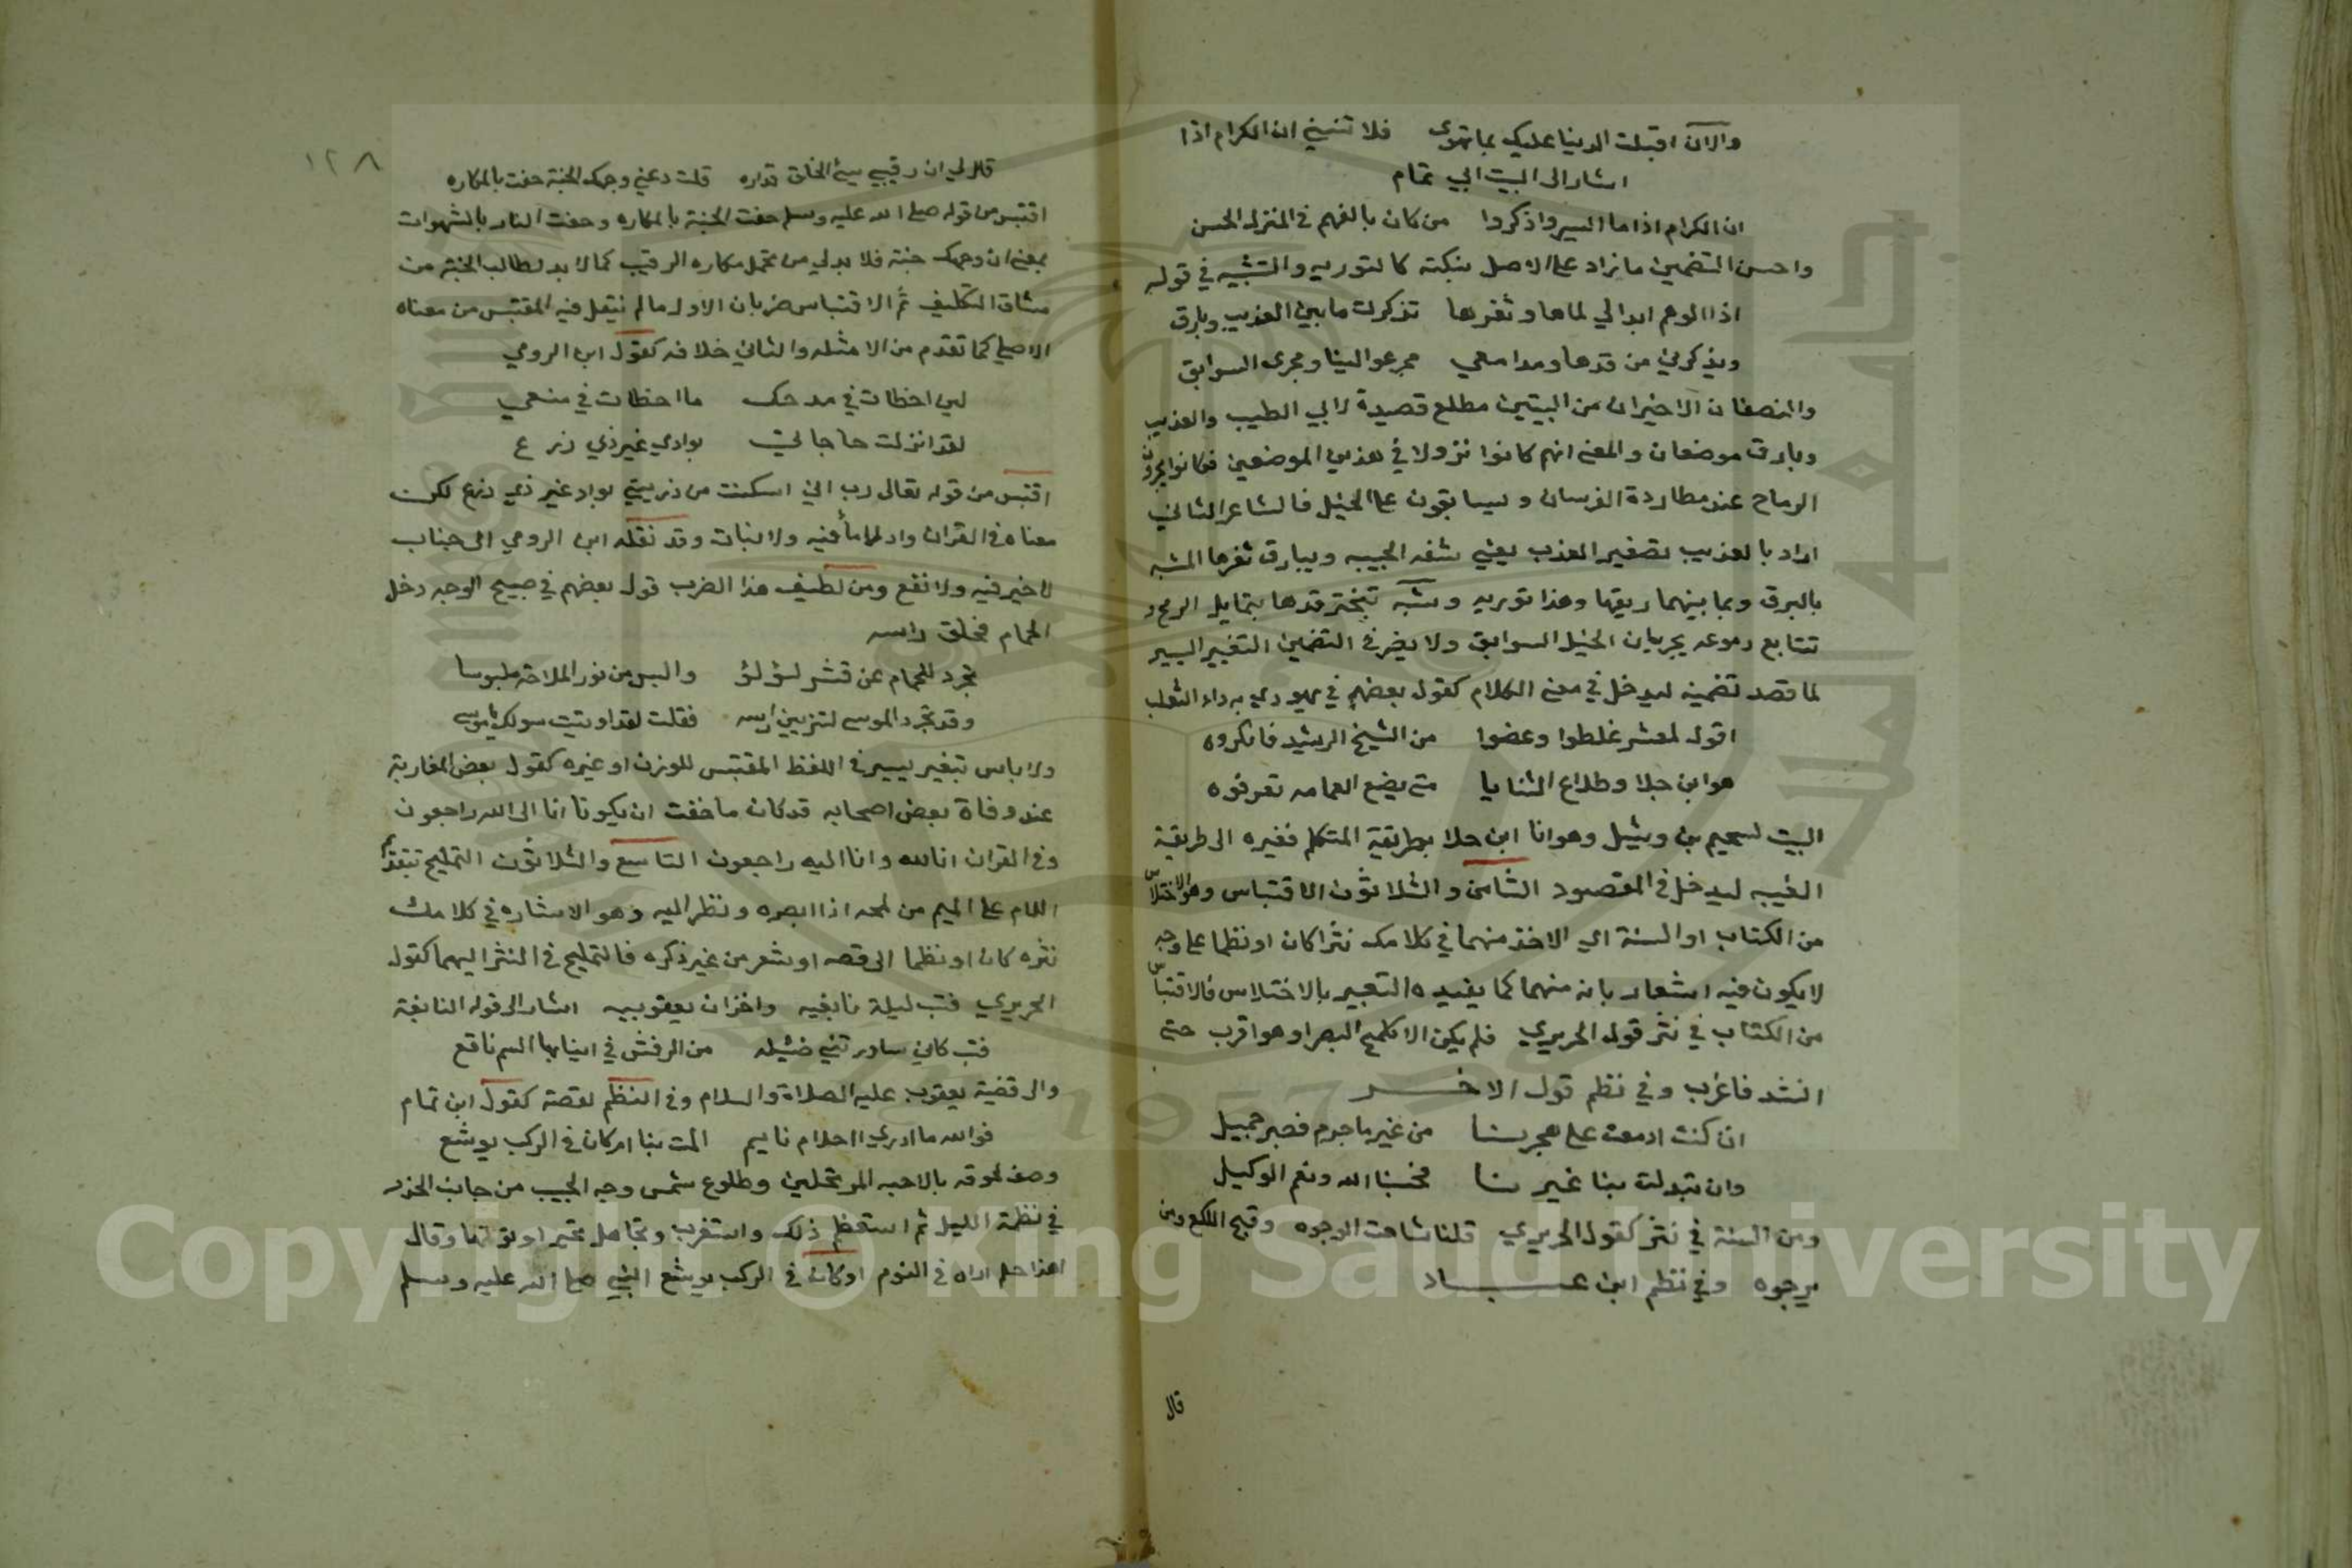 والآن اقبلت الدنيا عليك بما تهوى فلا تنسني ان الكرام اذا
اشار الى البيت ابي تمام
ان الكرام اذا ما ايسروا ذكروا من كان يالفهم في المنزل الخشن
واحسن التضمين ما زاد على الاصل بنكتة كالتوريه والتشبيه في قوله
اذا الوهم ابدا لي لماها وثغرها تذكرت ما بين العذيب وبارق
ويذكرني من قدها ومدامعي مجر عوالينا ومجرى السوابق
والنصفان الاخيران من البيتين مطلع قصيدة لابي الطيب والعذيب
وبارق موضعان والمعنى انهم كانوا نزولا في هذين الموضعين فكانوا يجرون
الرماح عند مطاردة الفرسان ويسابقون على الخيل فالشاعر الثاني
اراد بالعذيب تصغير العذب يعني شفه الحبيبه وببارق ثغرها المشبه
بالبرق وبما بينهما ريقها وهذا توريه وشبه تبختر قدها بتمايل الرمح و
تتابع دموعه بجريان الخيل السوابق ولا يضر في التضمين التغيير اليسير
لما قصد تضمينه ليدخل في معنى الكلام كقول بعضهم في يهودي به داء الثعلب
اقول لمعشر غلطوا وعضوا من الشيخ الرشيد فانكروه
هو ابن جلا وطلاع الثنايا متى يضع العمامه تعرفوه
البيت لسحيم بن وثيل وهو انا ابن جلا بطريقة المتكلم فغيره الى طريقة
الغيبه ليدخل في المقصود الثامن والثلاثون الاقتباس وهو الاختلاس
من الكتاب او السنة اي الاخذ منهما في كلامك نثرا كان او نظما على وجه
لا يكون فيه اشعار بانه منهما كما يفيده التعبير بالاختلاس فالاقتباس
من الكتاب في نثر قول الحريري فلم يكن الا كلمح البصر او هو اقرب حتى
انشد فاغرب وفي نظم قول الاخر
ان كنت ازمعت على هجرنا من غير ما جرم فصبر جميل
وان تبدلت بنا غيرنا فحسبنا الله ونعم الوكيل
ومن السنة في نثر كقول الحريري قلنا شاهت الوجوه وقبح اللكع ومن
يرجوه وفي نظم ابن عباد
قال
١٢٨
قال لي ان رقيبي سيئ الخلق فداره قلت دعني وجهك الجنة حفت بالمكاره
اقتبس من قوله صلى الله عليه وسلم حفت الجنة بالمكاره وحفت النار بالشهوات
بمعنى ان وجهك جنة فلا بد لي من تحمل مكاره الرقيب كما لا بد لطالب الجنة من
مشاق التكليف ثم الاقتباس ضربان الاول ما لم ينقل فيه المقتبس من معناه
الاصلي كما تقدم من الامثله والثاني خلافه كقول ابن الرومي
لين اخطات في مدحك ما اخطات في منعي
لقد انزلت حاجاتي بوادي غير ذي زرع
اقتبس من قوله تعالى رب اني اسكنت من ذريتي بواد غير ذي زرع لكن
معناه في القران واد لا ماء فيه ولا نبات وقد نقله ابن الرومي الى جناب
لا خير فيه ولا نفع ومن لطيف هذا الضرب قول بعضهم في صبيح الوجه دخل
الحمام فحلق راسه
تجرد للحمام عن قشر لؤلؤ والبس من نور الملاحة ملبوسا
وقد تجرد الموسى لتزيين راسه فقلت لقد اوتيت سولك يا موسى
ولا باس بتغير يسير في اللفظ المقتبس للوزن او غيره كقول بعض المغاربة
عند وفاة بعض اصحابه قد كان ما خفت ان يكونا انا الى الله راجعون
وفي القران انا لله وانا اليه راجعون التاسع والثلاثون التمليح بتقديم
اللام على الميم من لمحه اذا ابصره ونظر اليه وهو الاشاره في كلامك
نثره كان او نظما الى قصه او شعر من غير ذكره فالتمليح في النثر اليهما كقول
الحريري فبت ليلة نابغيه واحزان يعقوبيه اشار الى قول النابغة
فبت كاني ساورتني ضئيله من الرقش في انيابها السم ناقع
والى قضية يعقوب عليه الصلاة والسلام وفي النظم لقصة كقول ابن تمام
فوالله ما ادري ااحلام نايم المت بنا ام كان في الركب يوشع
وصف لحوقه بالاحبه المرتحلين وطلوع شمس وجه الحبيب من جانب الخدر
في ظلمة الليل ثم استعظم ذلك واستغرب وتجاهل تحيرا وقال
اهذا حلم اراه في النوم او كان في الركب يوشع النبي صلى الله عليه وسلم
Copyright © King Saud University
1957